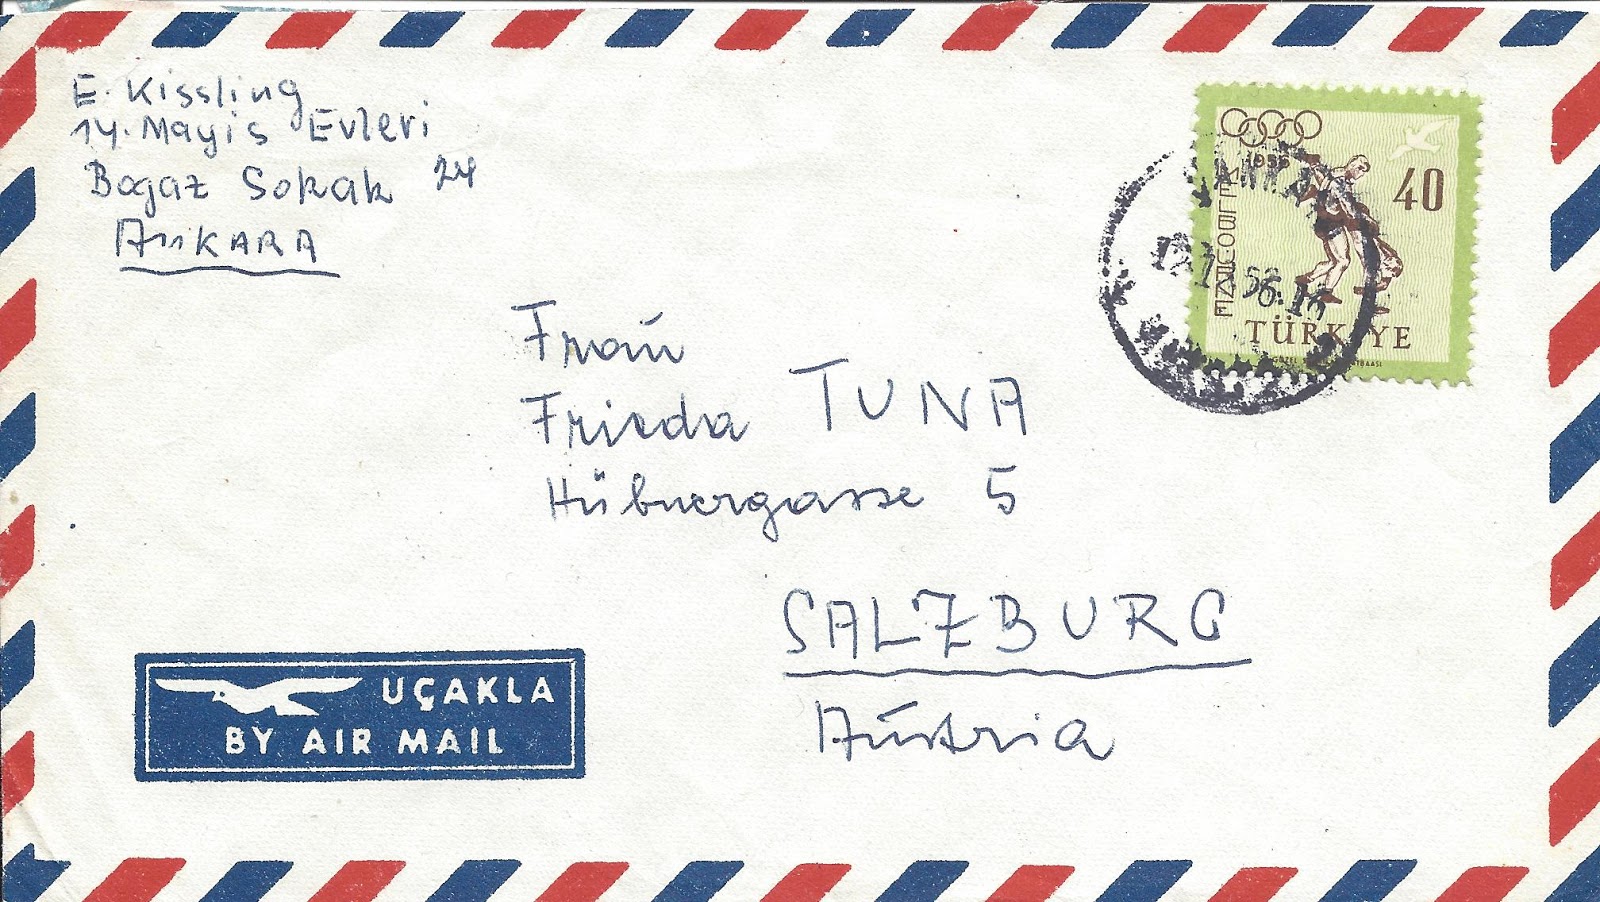 E. Kissling
14. Mayis Evleri
Bogaz Sokak 24
ANKARA
1956
MELBOURNE
40
TÜRKİYE
Frau
Frieda TUNA
Hübnergasse 5
SALZBURG
Austria
UÇAKLA
BY AIR MAIL